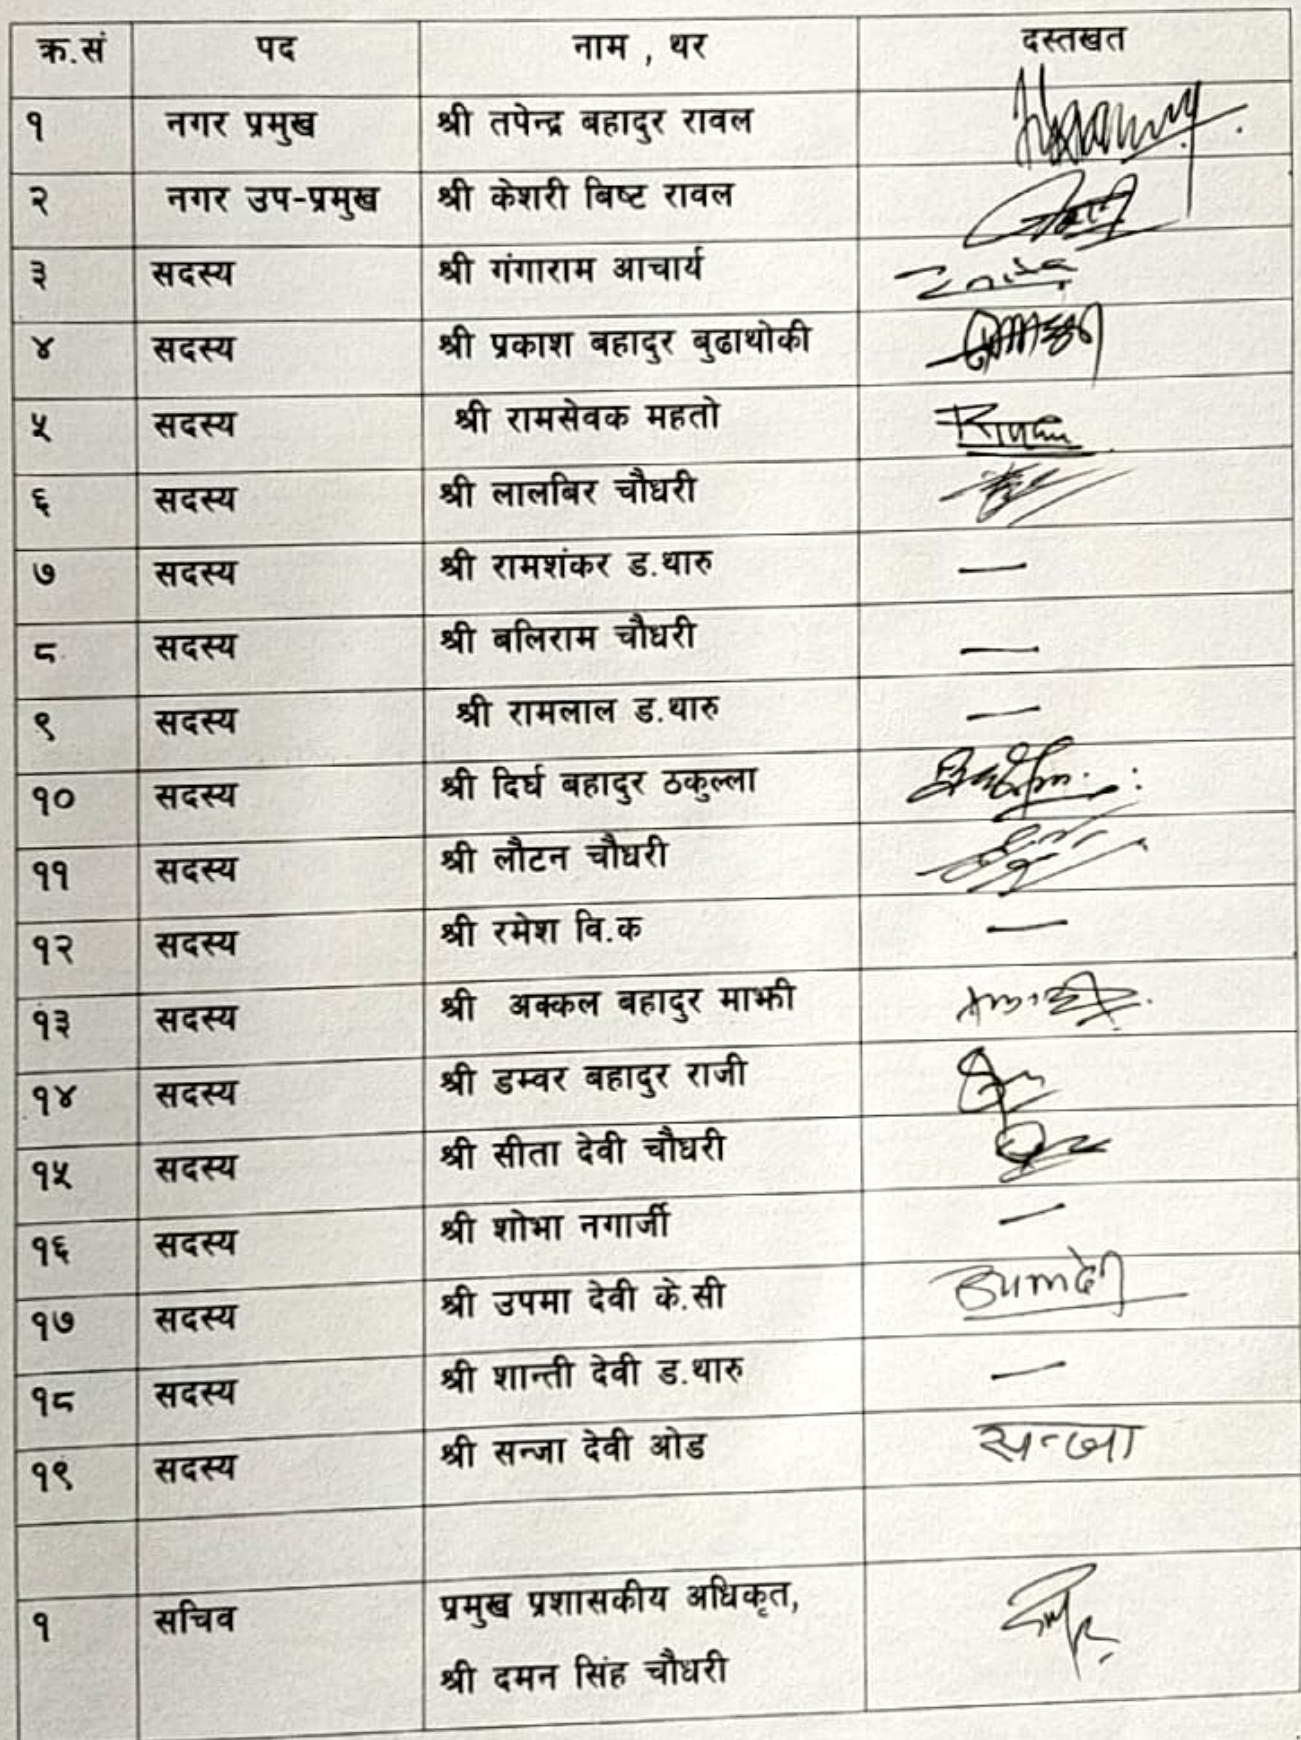 क्र.सं पद नाम , थर दस्तखत
१ नगर प्रमुख श्री तपेन्द्र बहादुर रावल
२ नगर उप-प्रमुख श्री केशरी बिष्ट रावल
३ सदस्य श्री गंगाराम आचार्य
४ सदस्य श्री प्रकाश बहादुर बुढाथोकी
५ सदस्य श्री रामसेवक महतो
६ सदस्य श्री लालबिर चौधरी
७ सदस्य श्री रामशंकर ड.थारु —
८ सदस्य श्री बलिराम चौधरी —
९ सदस्य श्री रामलाल ड.थारु —
१० सदस्य श्री दिर्घ बहादुर ठकुल्ला
११ सदस्य श्री लौटन चौधरी
१२ सदस्य श्री रमेश वि.क —
१३ सदस्य श्री अक्कल बहादुर माझी
१४ सदस्य श्री डम्वर बहादुर राजी
१५ सदस्य श्री सीता देवी चौधरी
१६ सदस्य श्री शोभा नगार्जी —
१७ सदस्य श्री उपमा देवी के.सी
१८ सदस्य श्री शान्ती देवी ड.थारु —
१९ सदस्य श्री सन्जा देवी ओड सन्जा
१ सचिव प्रमुख प्रशासकीय अधिकृत,
श्री दमन सिंह चौधरी